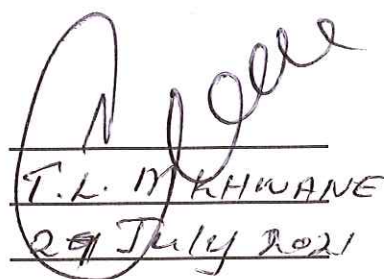 T.L. MKHWANE
July 2021